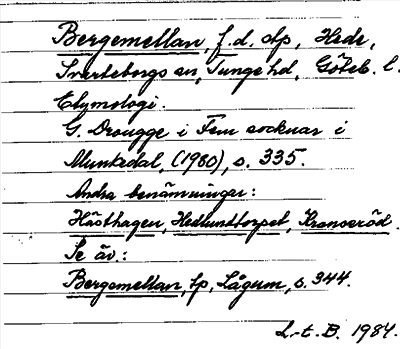 Bergemellan, f.d. tp, Hede,
Svarteborgs sn, Tunge hd, Göteb. l.
Etymologi.
G. Drougge i Fem socknar i
Munkedal, (1980), s. 335.
Andra benämningar:
Hästhagen, Hedlundtorpet, Kranseröd.
Se äv.:
Bergemellan, tp, Lågum, s. 344.
L-t. B. 1984.